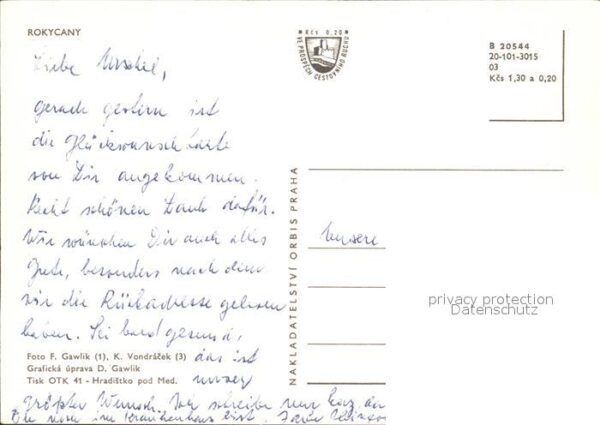 ROKYCANY
Liebe Urschel,
gerade gestern ist
die Glückwunschkarte
von Dir angekommen.
Recht schönen Dank dafür.
Wir wünschen Dir auch alles
Gute, besonders nach dem
wir die Rückadresse gelesen
haben. Sei bald gesund,
das ist
unser
größter Wunsch. Ich schreibe nur kurz, da
Du noch im Krankenhaus bist.
Foto F. Gawlik (1), K. Vondráček (3)
Grafická úprava D. Gawlik
Tisk OTK 41 - Hradištko pod Med.
Kčs 0,20
VE PROSPĚCH CESTOVNÍHO RUCHU
NAKLADATELSTVÍ ORBIS PRAHA
B 20544
20-101-3015
03
Kčs 1,30 a 0,20
privacy protection
Datenschutz